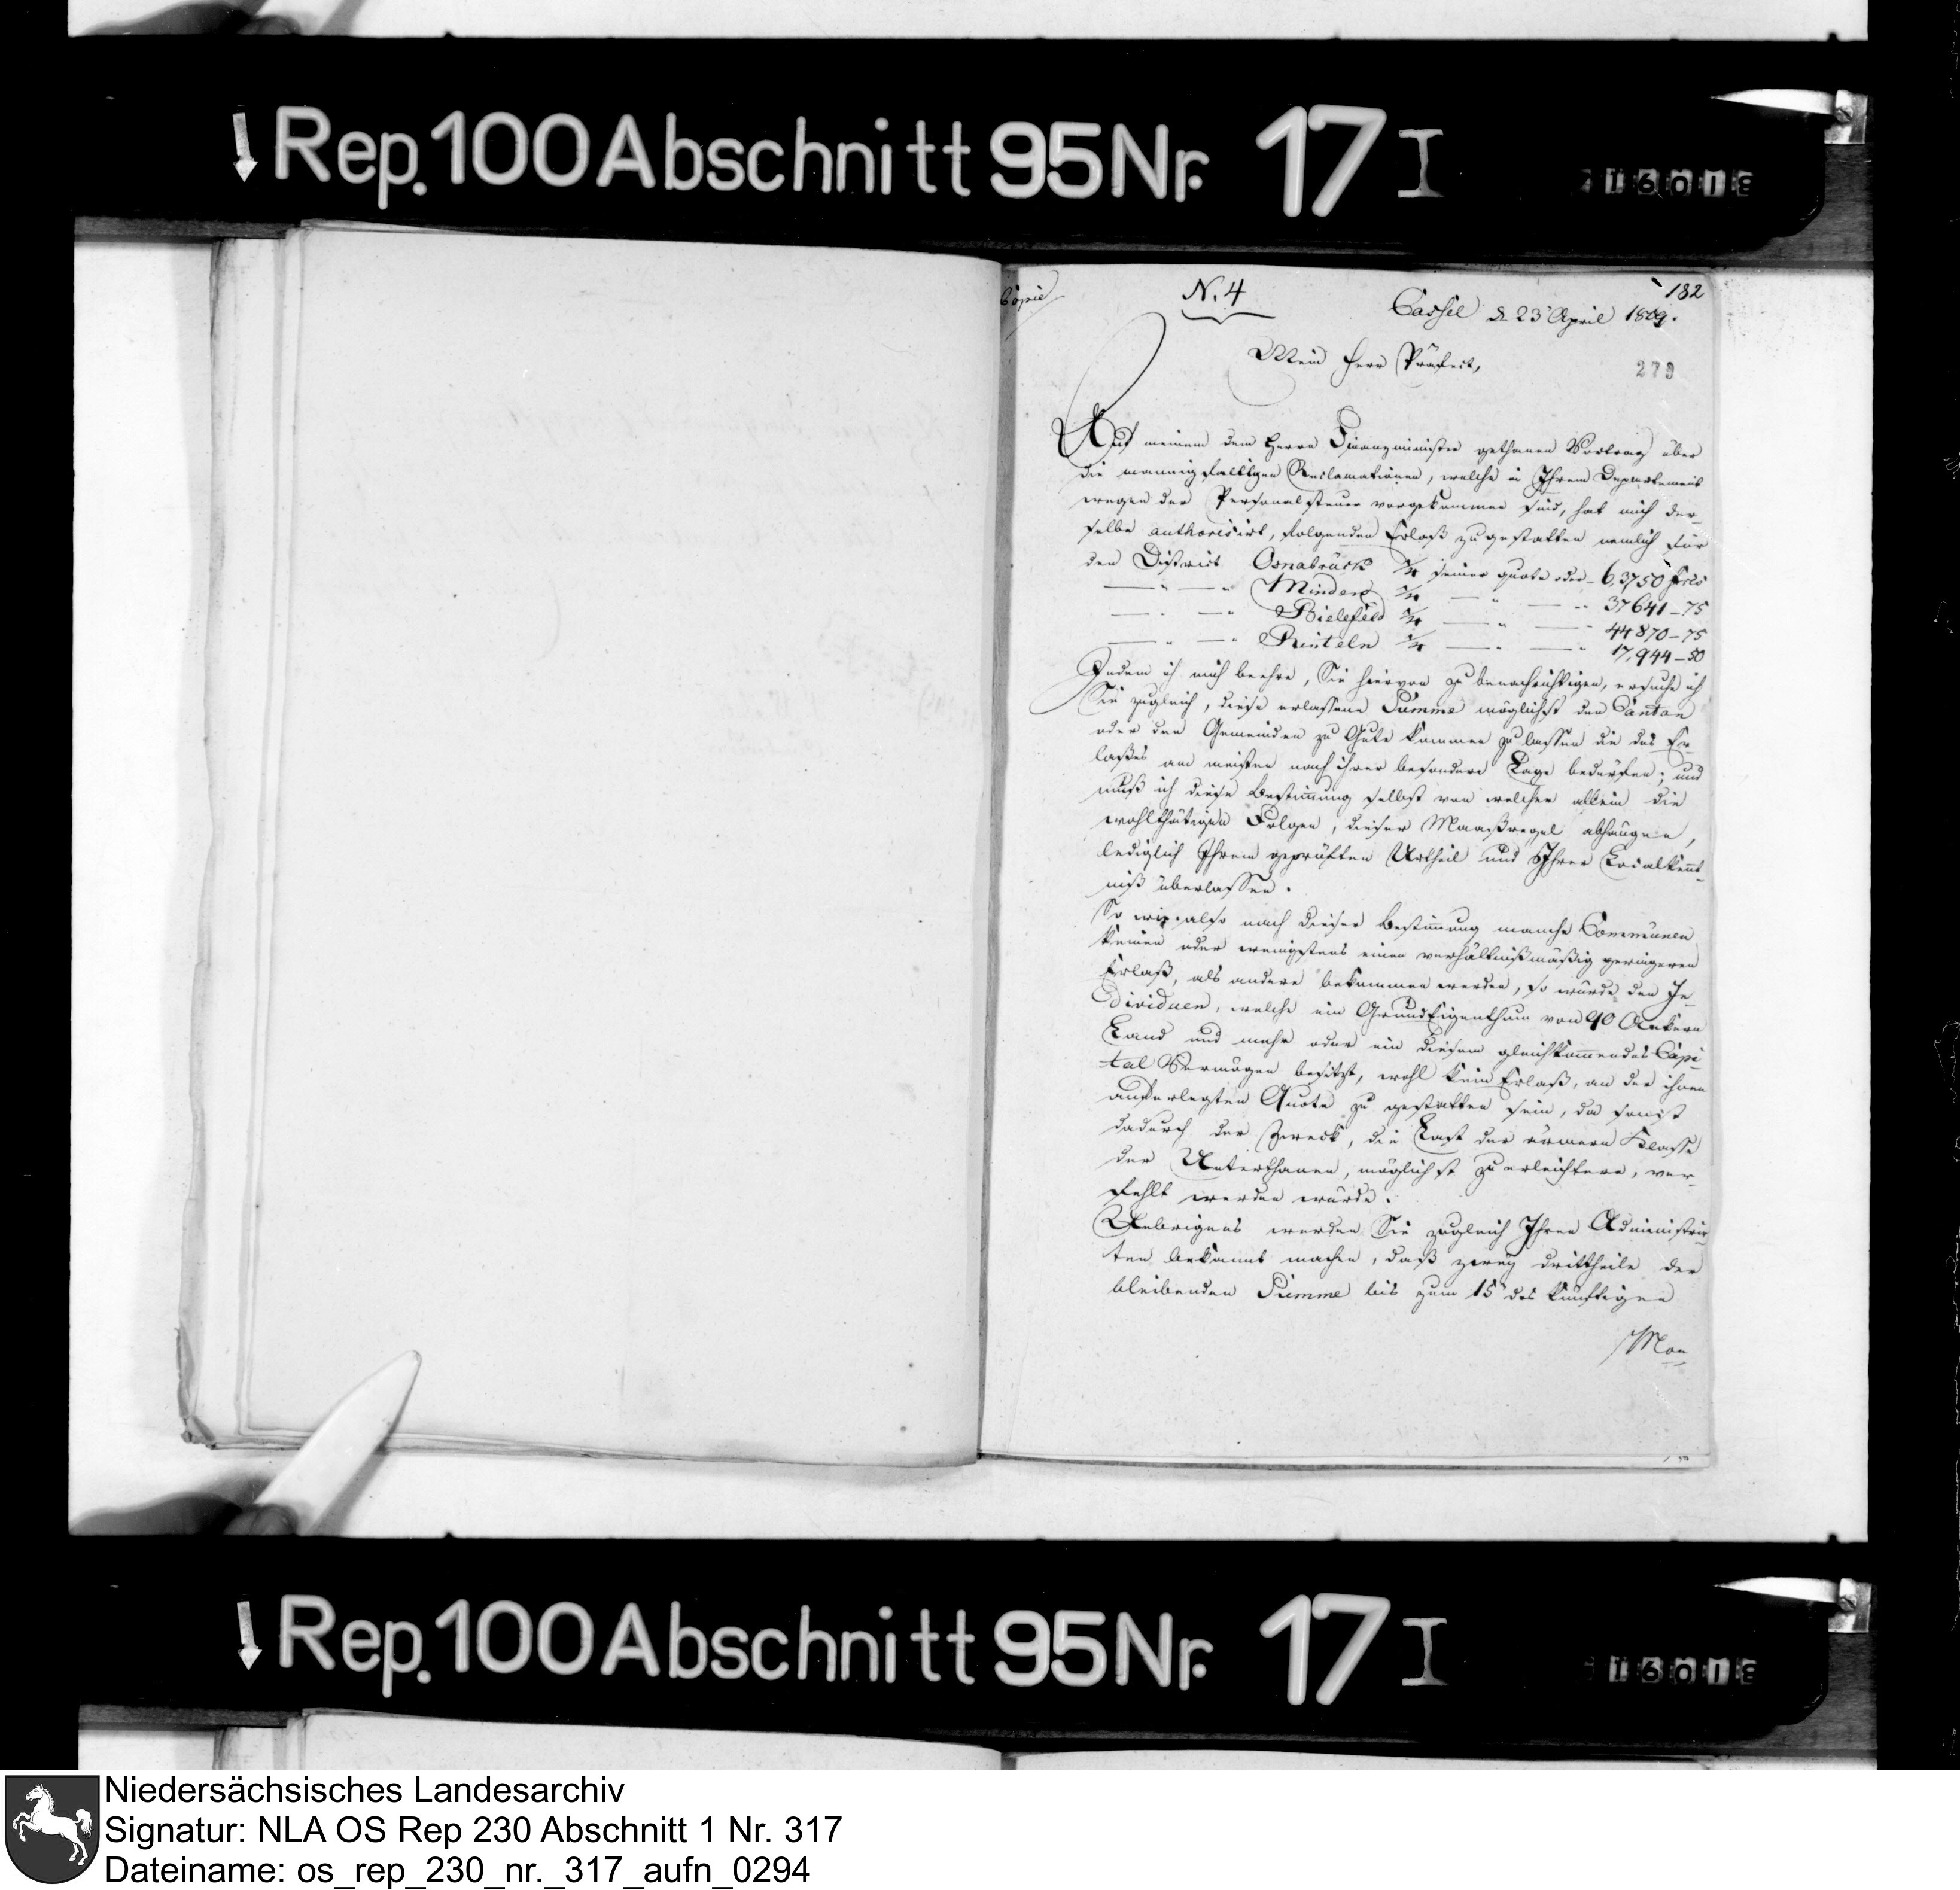 Rep. 100 Abschnitt 95 Nr. 17 I
16018
Copie
N. 4
182
Cassel d. 23 April 1809.
Mein Herr Präfect,
279
Auf meinem dem Herrn Finanzminister gethanen Vortrag über
die mannigfaltigen Reclamationen, welche in Ihrem Departement
wegen der Personalsteuer vorgekommen sind, hat mich der-
selbe authorisirt, folgenden Erlaß zu gestatten nemlich für
den District Osnabrück 1/4 seiner quote oder 63750 frcs
— " — " Minden 1/4 — " — " 37641 – 75
— " — " Bielefeld 1/4 — " — " 44870 – 75
— " — " Rinteln 1/4 — " — " 17,944 – 50
Indem ich mich beehre, Sie hiervon zu benachrichtigen, ersuche ich
Sie zugleich, diese erlassene Summe möglichst den Canton
oder den Gemeinden zu Gute kommen zu lassen die des Er-
laßes am meisten nach ihrer besondere Lage bedürfen; und
muß ich diese Bestimung selbst von welcher allein die
wohlthätigen Folgen, dieser Maaßregel abhängen,
lediglich Ihrem geprüften Urtheil und Ihrer Localkent-
niß überlassen.
So wie also nach dieser Bestimung manche Communen
keinen oder wenigstens einen verhältnißmäßig geringeren
Erlaß, als andere bekommen werden, so würde den In-
dividuen, welche ein GrundEigenthum von 90 Ackern
Land und mehr oder ein diesem gleichkomendes Capi-
tal Vermögen besitzt, wohl kein Erlaß, an der ihnen
auferlegten Quote zu gestatten sein, da sonst
dadurch der Zweck, die Last der ärmern Klasse
der Unterthanen, möglichst zu erleichtern, ver-
fehlt werden würde.
Uebrigens werden Sie zugleich Ihren Administrir-
ten bekannt machen, daß zwey drittheile der
bleibenden Summe bis zum 15 des künftigen
Mon-
Rep. 100 Abschnitt 95 Nr. 17 I
16018
Niedersächsisches Landesarchiv
Signatur: NLA OS Rep 230 Abschnitt 1 Nr. 317
Dateiname: os_rep_230_nr._317_aufn_0294